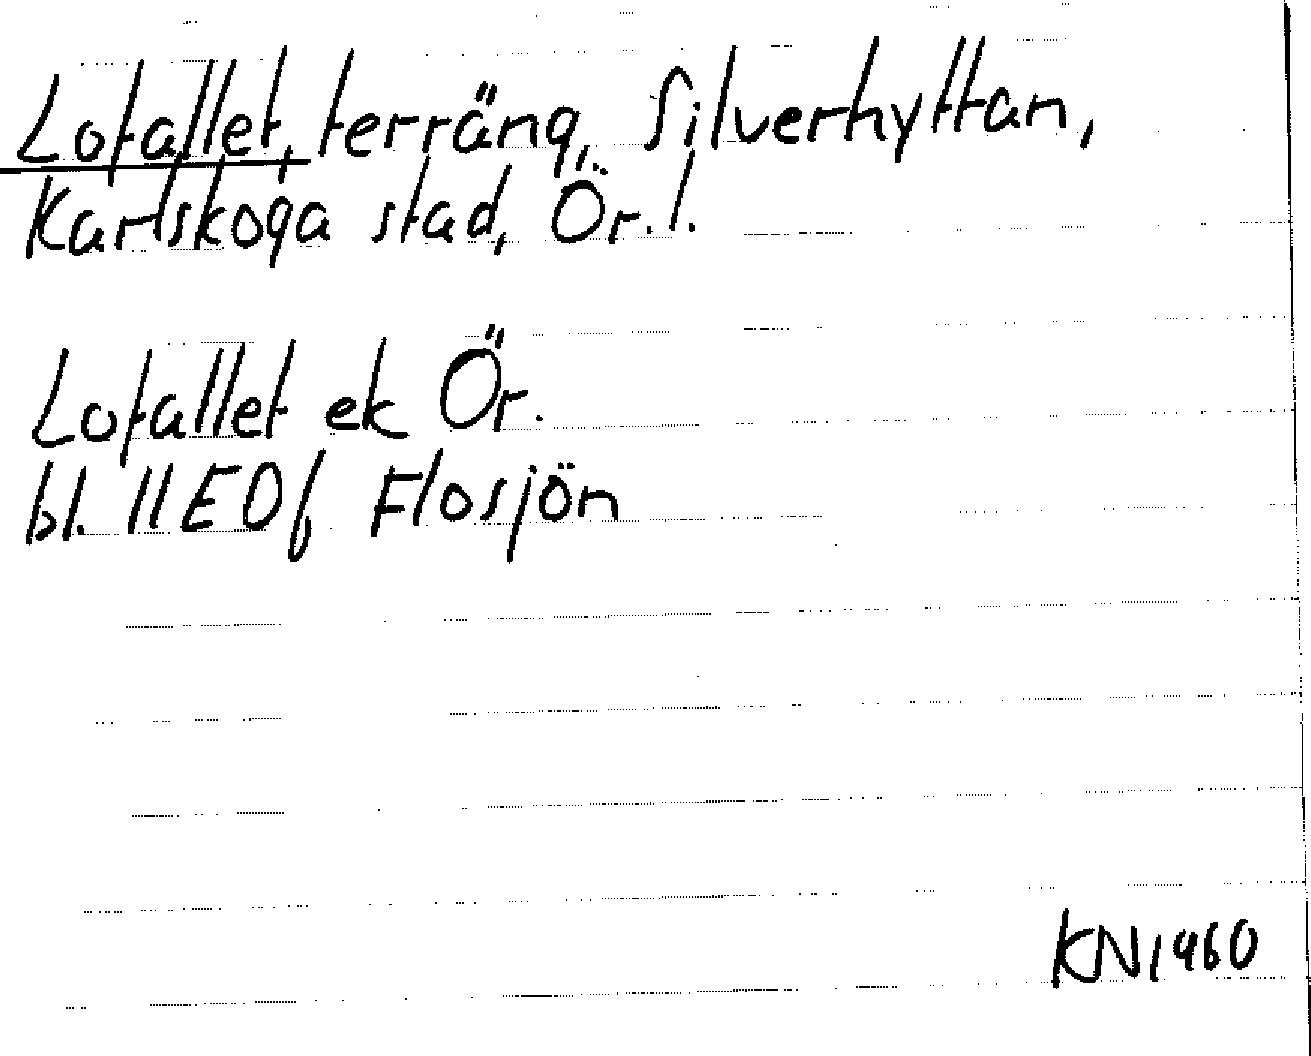 Lofallet, terräng, Silverhyttan,
Karlskoga stad, Ör.l.
Lofallet ek Ör.
bl. 11E0f Flosjön
KN1960